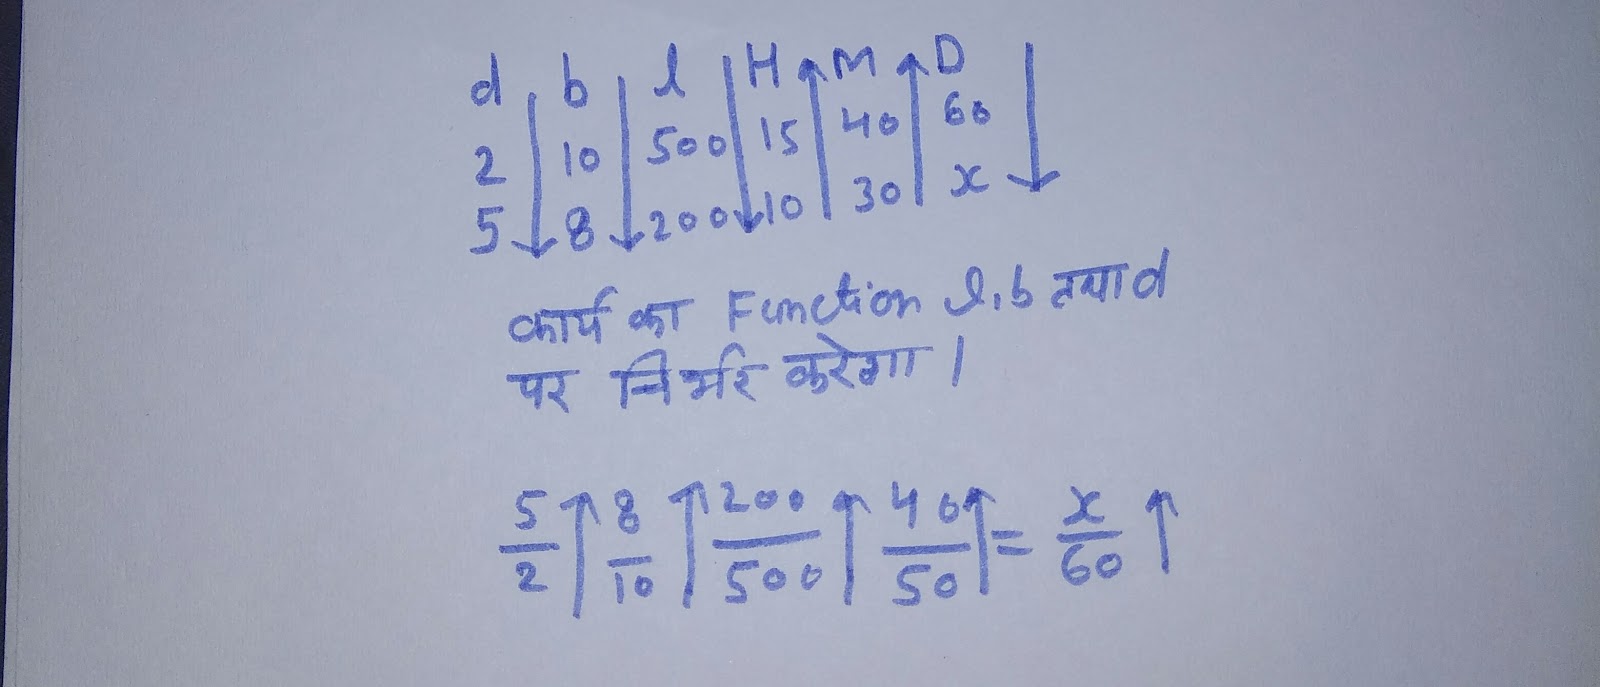 d ↓ b ↓ l ↓ H ↑ M ↑ D ↓
2 10 500 15 40 60
5 8 200 10 30 x
कार्य का Function l, b तथा d
पर निर्भर करेगा।
5/2 ↑ 8/10 ↑ 200/500 ↑ 40/50 ↑ = x/60 ↑